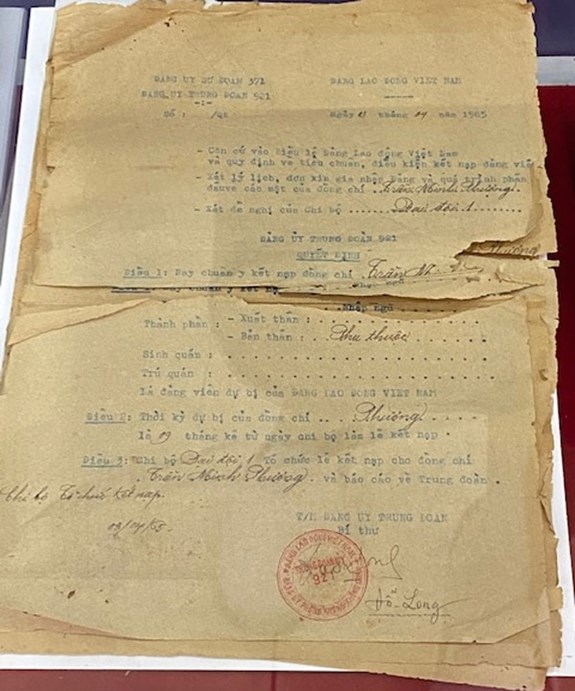 ĐẢNG ỦY SƯ ĐOÀN 371 ĐẢNG LAO ĐỘNG VIỆT NAM
ĐẢNG ỦY TRUNG ĐOÀN 921
Số : Ngày tháng 04 năm 1965
- Căn cứ vào Điều lệ Đảng Lao động Việt Nam
và quy định về tiêu chuẩn, điều kiện kết nạp đảng viên
- Xét lý lịch, đơn xin gia nhập Đảng và quá trình phấn
của đồng chí Trần Minh Phương
- Xét đề nghị của Chi bộ Đại đội 1
ĐẢNG ỦY TRUNG ĐOÀN 921
QUYẾT ĐỊNH
Phương
Điều 1: Nay chuẩn y kết nạp đồng chí Trần
chuẩn y kết nạp
Nhập ngũ
Thành phần : - Xuất thân :
- Bản thân : Phụ thuộc
Sinh quán :
Trú quán :
là đảng viên dự bị của ĐẢNG LAO ĐỘNG VIỆT NAM
Điều 2: Thời kỳ dự bị của đồng chí : Phương
là 09 tháng kể từ ngày chi bộ làm lễ kết nạp .
Điều 3: Chi bộ Đại đội 1 Tổ chức lễ kết nạp cho đồng chí
Trần Minh Phương và báo cáo về Trung đoàn .
Chi bộ Tổ chức kết nạp
T/M ĐẢNG ỦY TRUNG ĐOÀN
Bí thư
ĐẢNG LAO ĐỘNG VIỆT NAM
Hồ Long